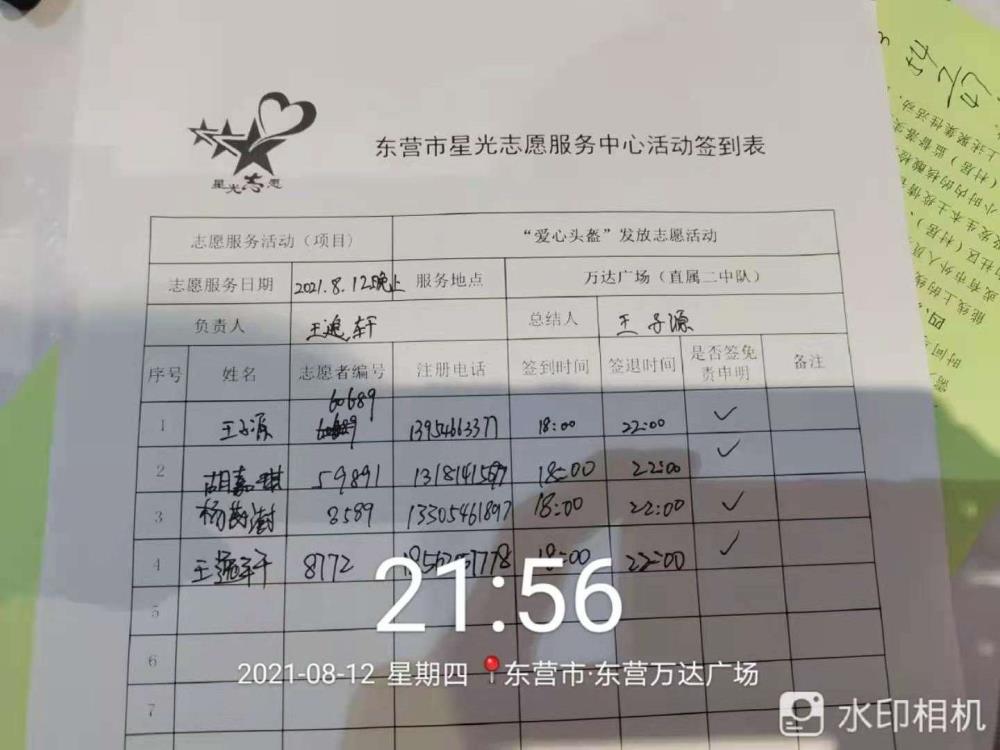 东营市星光志愿服务中心活动签到表
星光志愿
志愿服务活动（项目） “爱心头盔”发放志愿活动
志愿服务日期 2021.8.12晚上 服务地点 万达广场（直属二中队）
负责人 轩 总结人 王子源
序号 姓名 志愿者编号 注册电话 签到时间 签退时间 是否签免责申明 备注
60689
1 王子源 13954663377 18:00 22:00 ✓
2 胡嘉琪 59891 18:00 22:00 ✓
3 杨 3589 13305461897 18:00 22:00 ✓
4 王 8772 18:00 22:00 ✓
5
6
7
21:56
2021-08-12 星期四 东营市·东营万达广场
水印相机